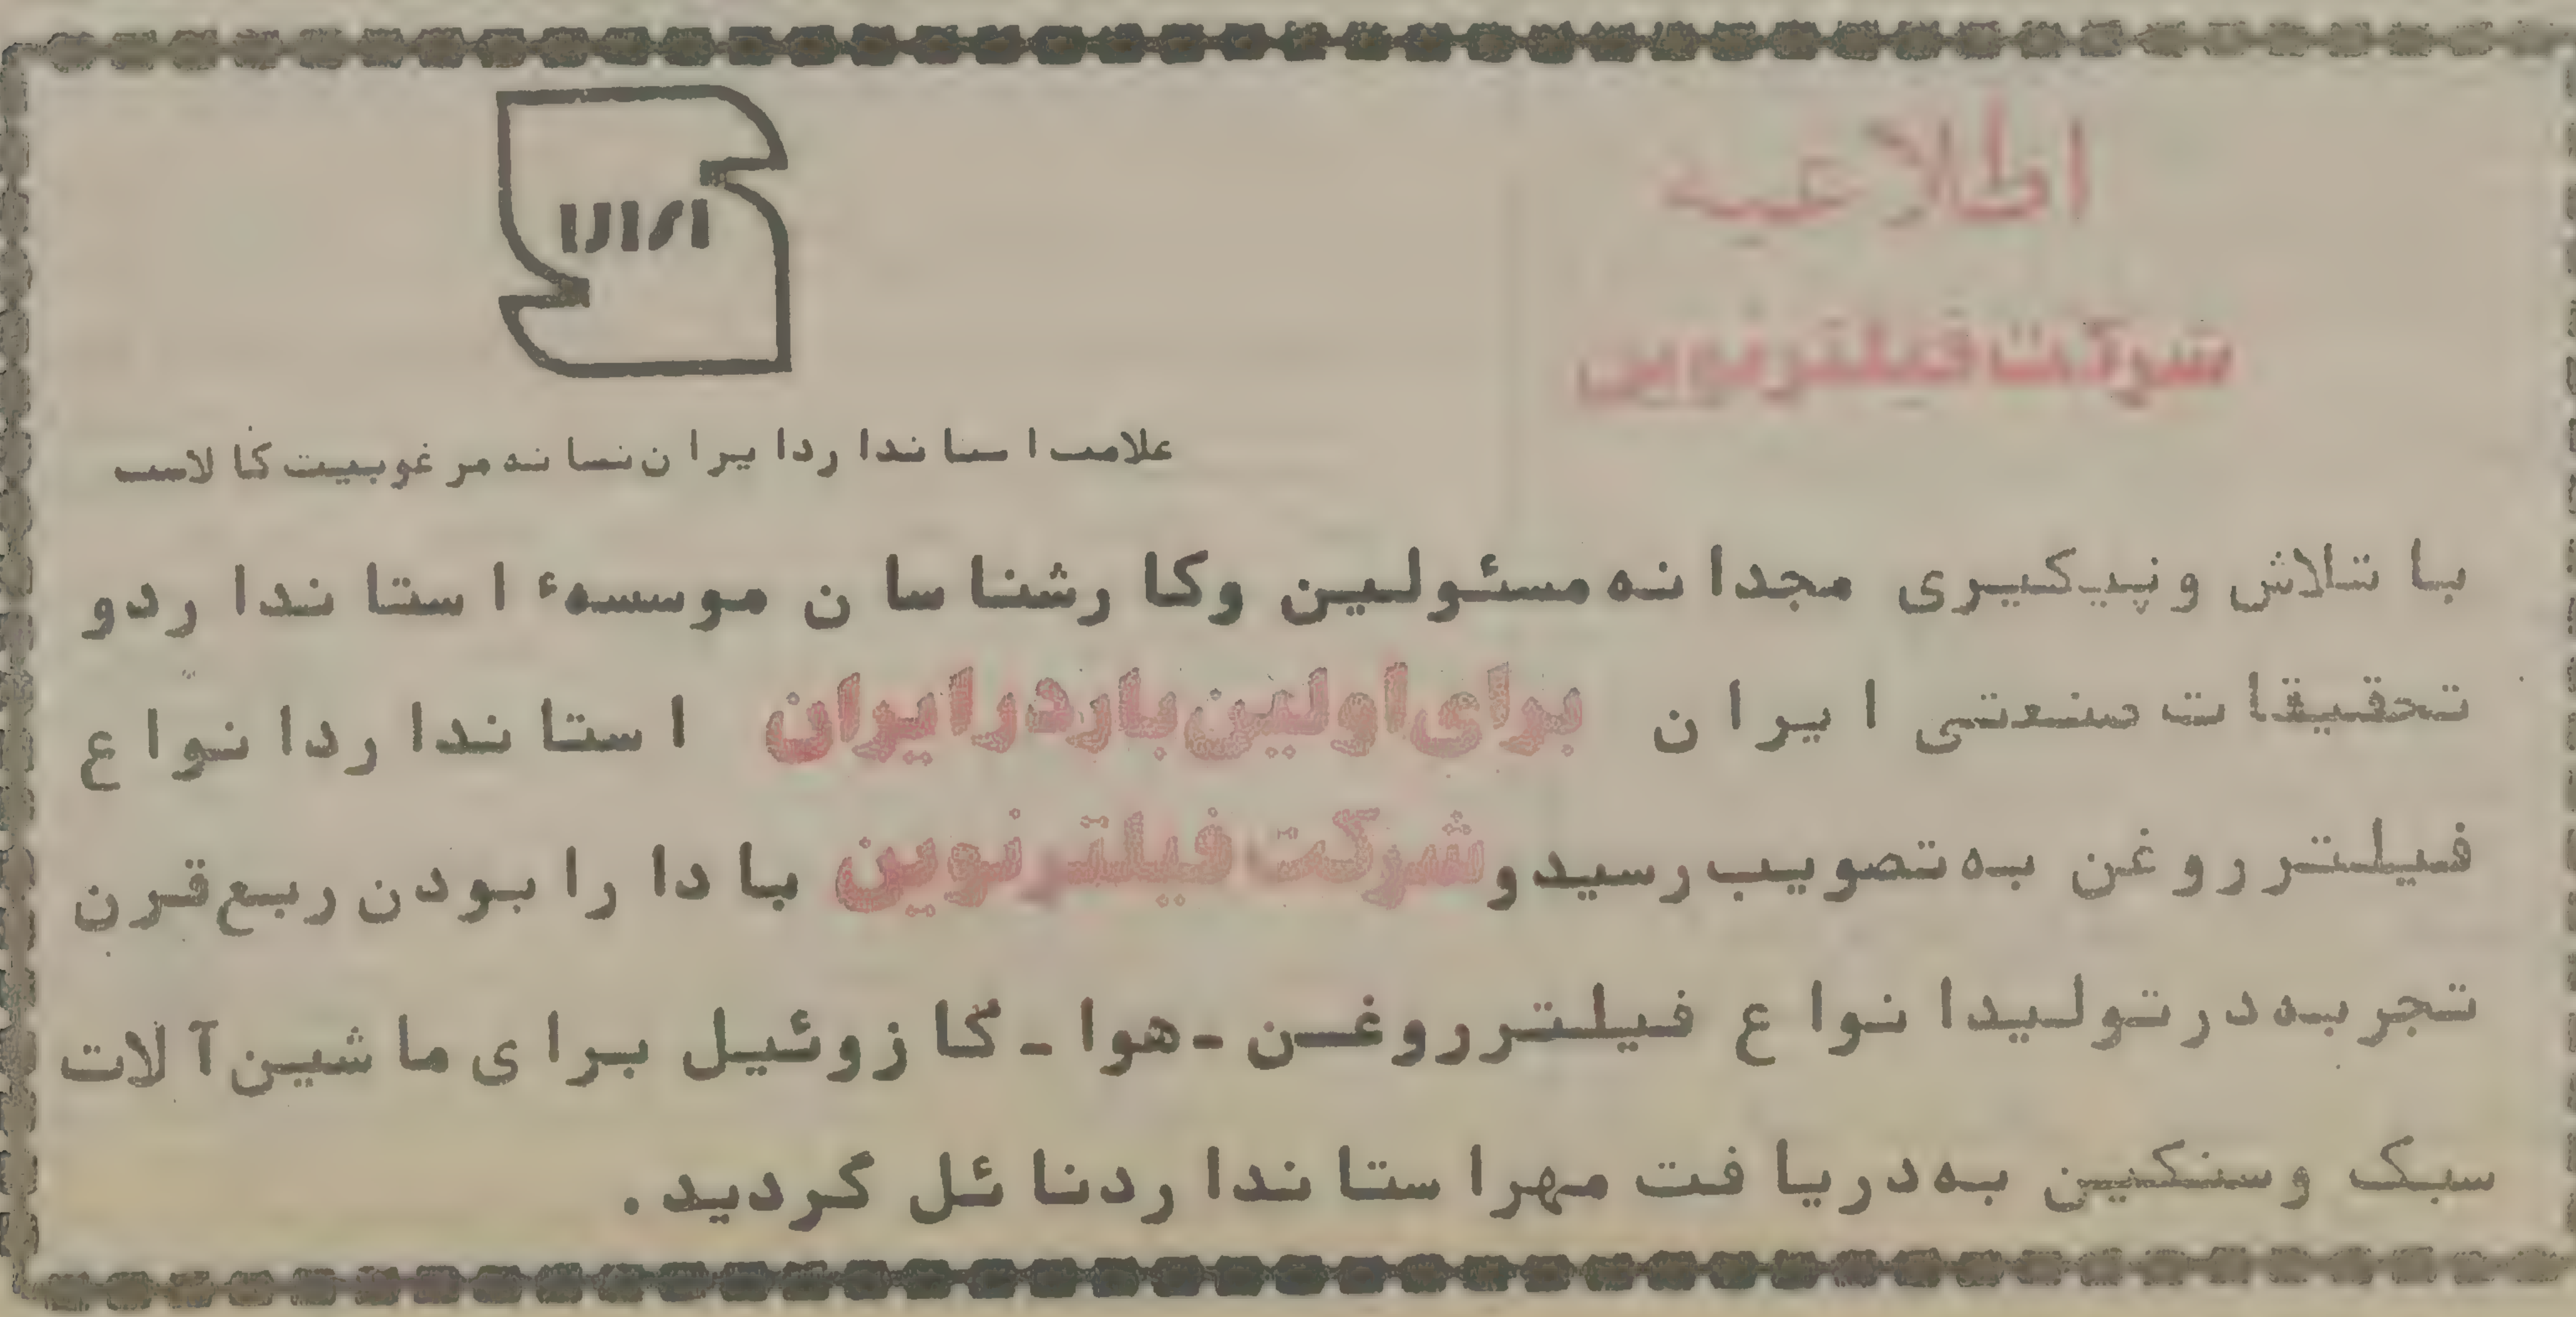 اطلاعیه
شرکت فیلتر نوین
علامت استاندارد ایران نشانه مرغوبیت کالاست
با تلاش و پیگیری مجدانه مسئولین و کارشناسان موسسهٔ استاندارد و
تحقیقات صنعتی ایران برای اولین بار در ایران استاندارد انواع
فیلتر روغن به تصویب رسید و شرکت فیلتر نوین با دارا بودن ربع قرن
تجربه در تولید انواع فیلتر روغن - هوا - گازوئیل برای ماشین آلات
سبک و سنگین به دریافت مهر استاندارد نائل گردید.